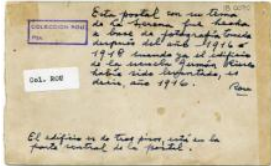 B 0070
COLECCION ROU
Esta postal con un tema
de La Serena fue hecha
a base de fotografía tomada
después del año 1916 ó
1918 cuando ya el edificio
de la escuela Germán Riesco
había sido levantado, es
decir, año 1916.
Rou
Col. ROU
El edificio es de tres pisos, está en la
parte central de la postal.